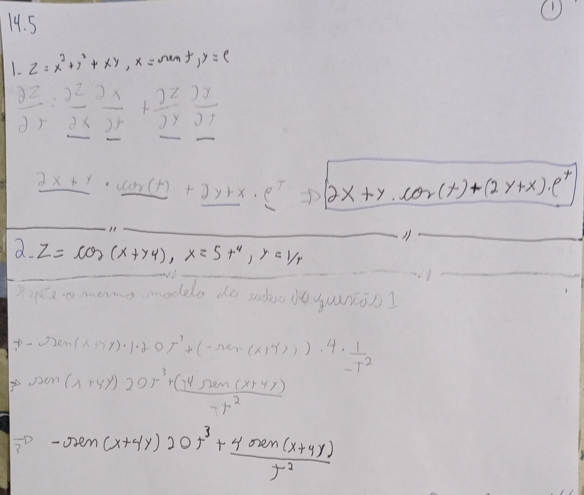 14.5
1
1. Z = x² + y² + xy, x = sen t, y = e
∂Z/∂t : ∂Z/∂x ∂x/∂t + ∂Z/∂y ∂y/∂t
2x + y · cos(t) + 2y + x · e^t ⇒ 2x + y . cos(t) + (2y + x) . e^t
2. Z = cos (x + y4), x = 5t⁴, y = 1/t
o mesmo modelo da questão 1
⇒ - sen(x+4y) · 1 · 20t³ + (-sen(x+4y)) . 4 · 1/-t²
⇒ sen(x+4y) 20t³ + (-4 sen(x+4y))/-t²
⇒ - sen(x+4y) 20t³ + 4 sen(x+4y)/t²